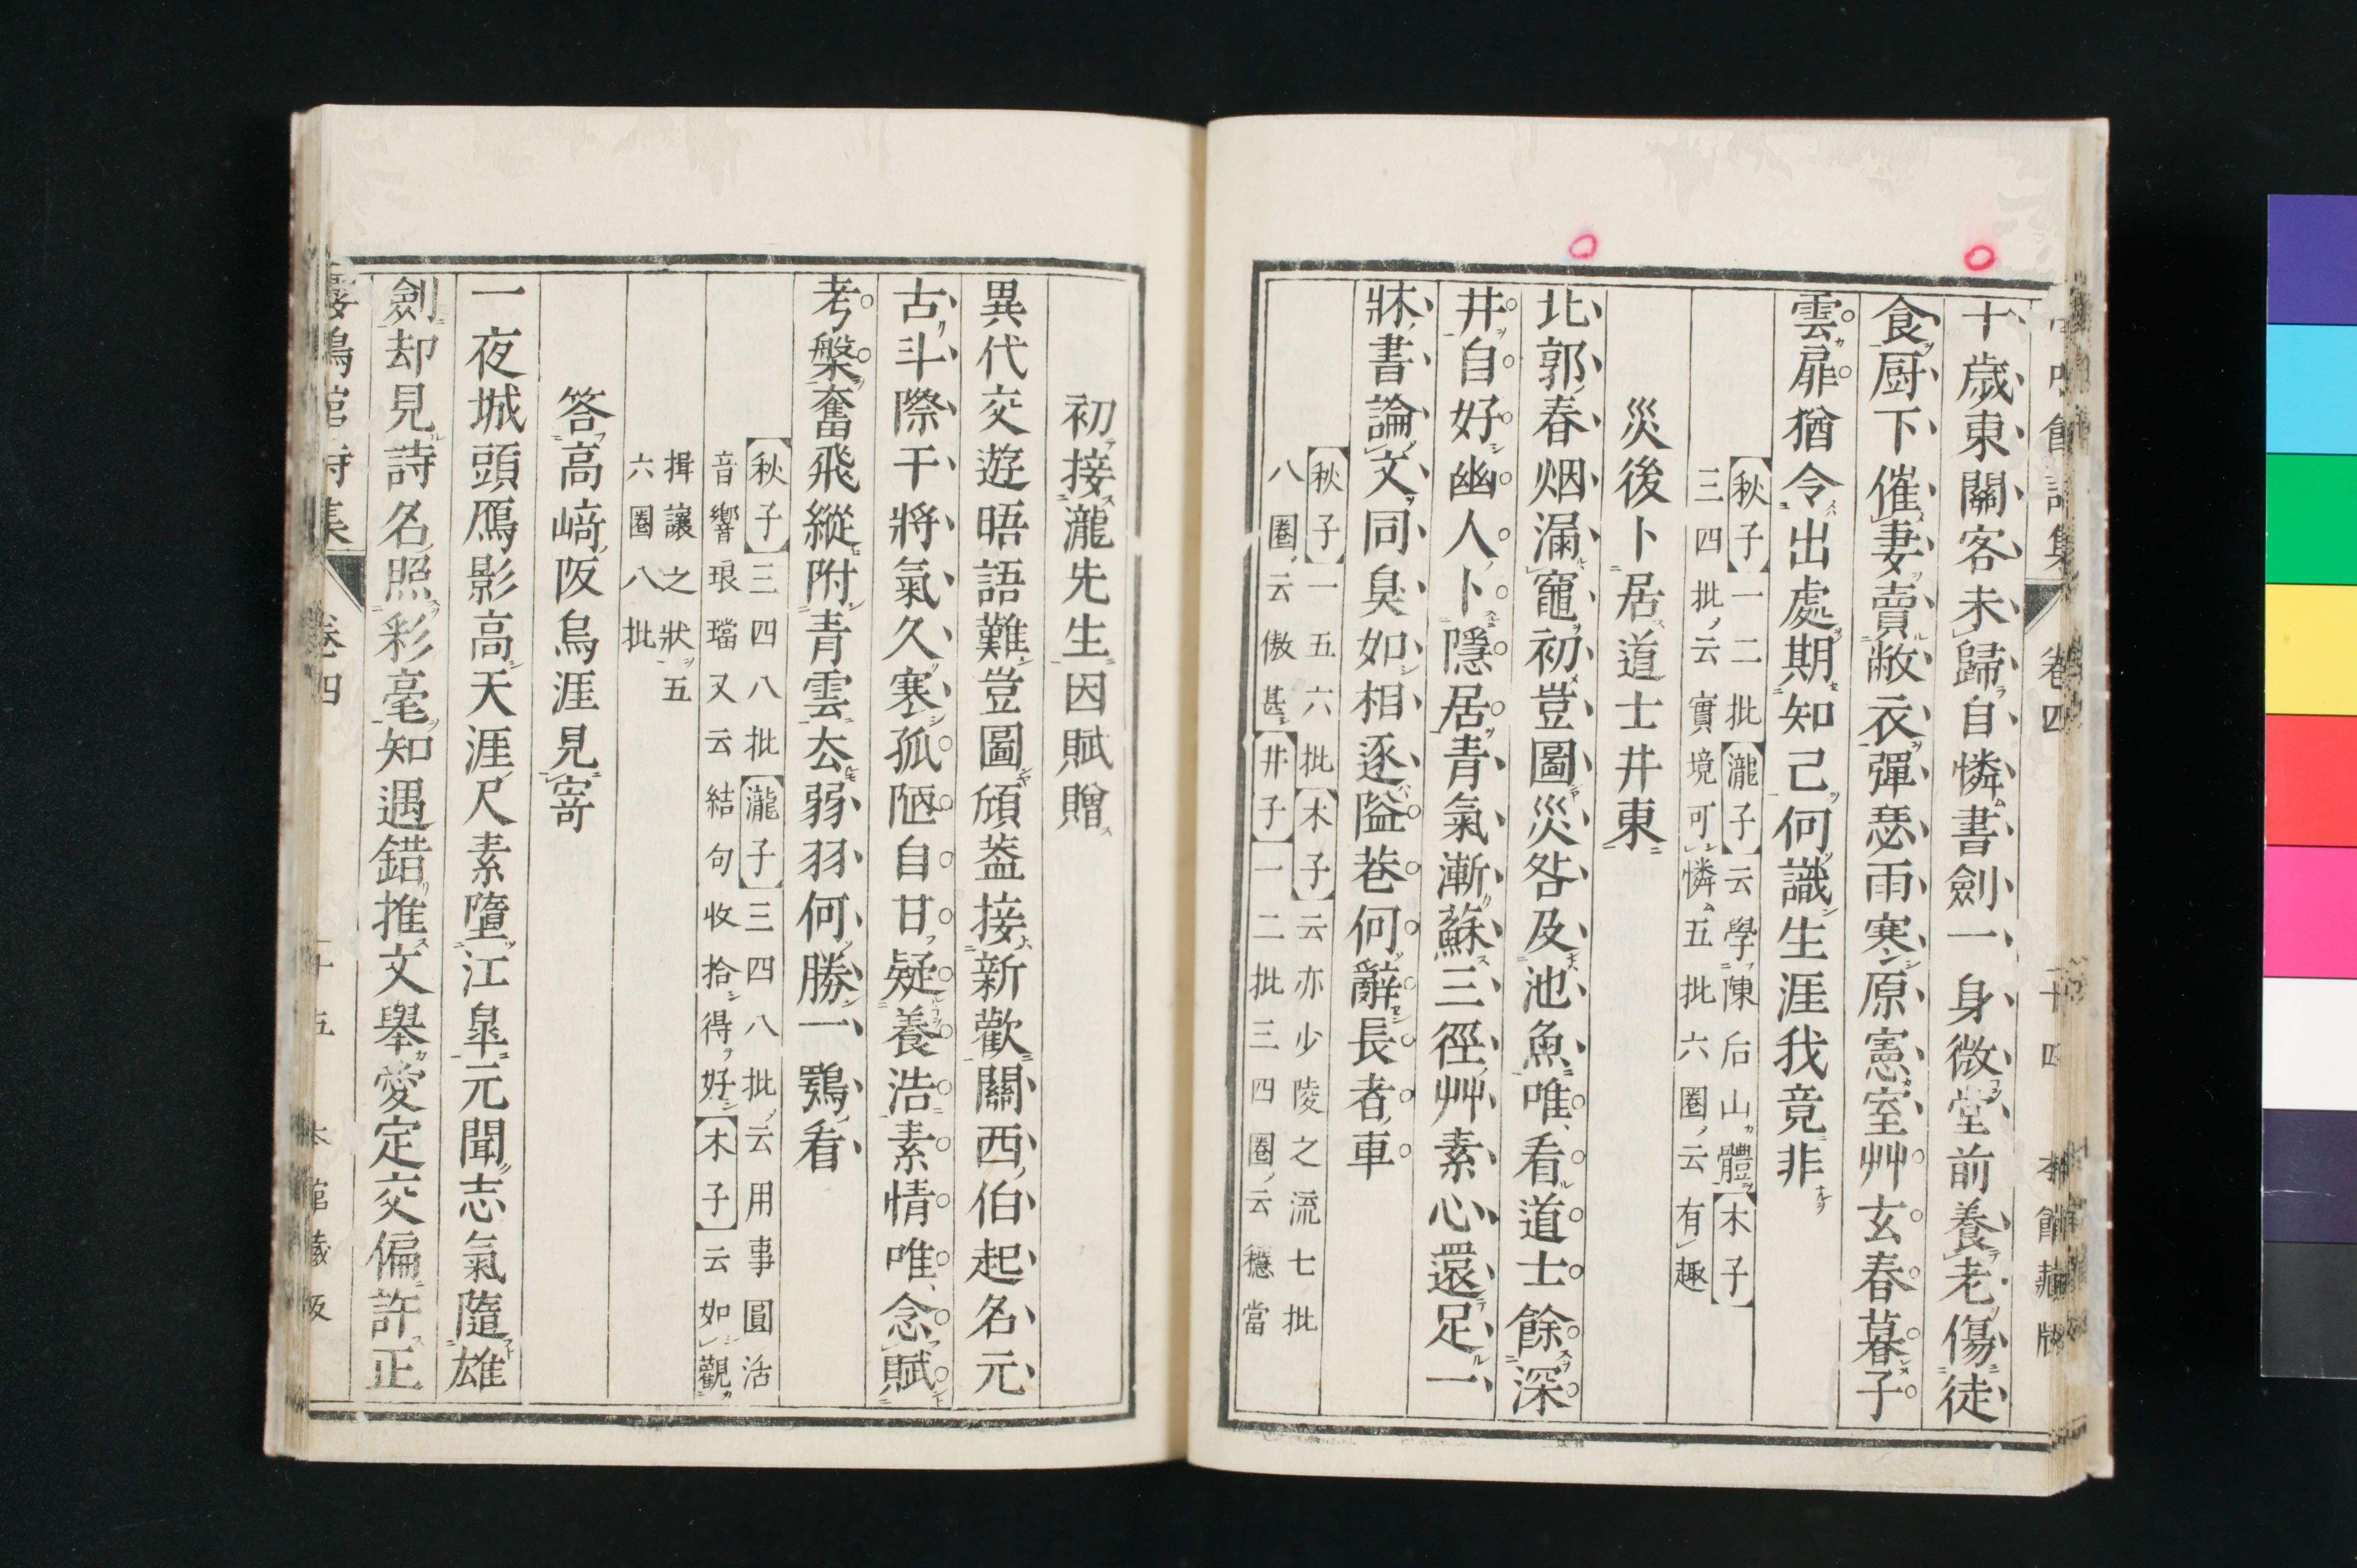 卷四
十四
本館藏版
十歲東關客未歸自憐書劍一身微堂前養老傷徒
食厨下催妻賣敝衣彈瑟雨寒原憲室艸玄春暮子
雲扉猶令出處期知己何識生涯我竟非
【秋子】一二批【瀧子】云學陳后山體【木子】
三四批云實境可憐五批六圈云有趣
災後卜居道士井東
北郭春烟漏竈初豈圖災咎及池魚唯看道士餘深
井自好幽人卜隱居青氣漸蘇三徑艸素心還足一
牀書論文同臭如相逐隘巷何辭長者車
【秋子】一五六批【木子】云亦少陵之流七批
八圈云傲甚【井子】一二批三四圈云穩當
初接瀧先生因賦贈
異代交遊晤語難豈圖頎葢接新歡關西伯起名元
古斗際干將氣久寒孤陋自甘疑養浩素情唯念賦
考槃奮飛縱附青雲厺弱羽何勝一鶚看
【秋子】三四八批【瀧子】三四八批云用事圓活
音響琅璫又云結句收拾得好【木子】云如觀
揖讓之狀五
六圈八批
答高﨑阪烏涯見寄
一夜城頭鴈影高天涯尺素墮江皐元聞志氣隨雄
劍却見詩名照彩毫知遇錯推文舉愛定交偏許正
鳴館詩集
卷四
十五
本館藏版